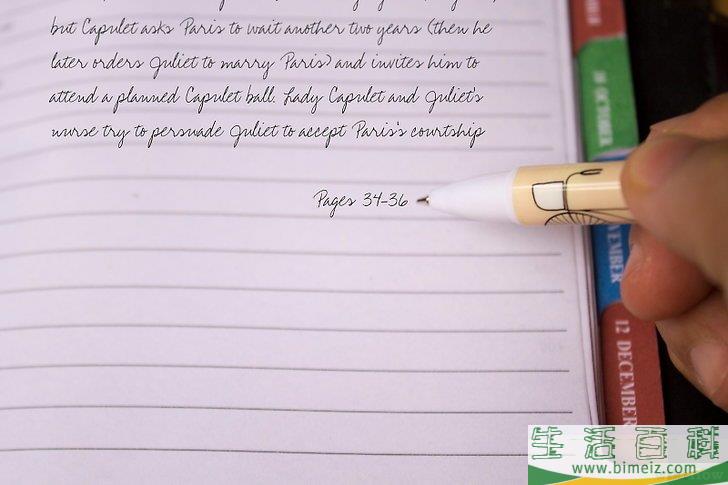 but Capulet asks Paris to wait another two years (then he
later orders Juliet to marry Paris) and invites him to
attend a planned Capulet ball. Lady Capulet and Juliet's
nurse try to persuade Juliet to accept Paris's courtship
Pages 34-36
10 OCTOBER
VEMBER
12 DECEMBER
生活百科
www.bimeiz.com